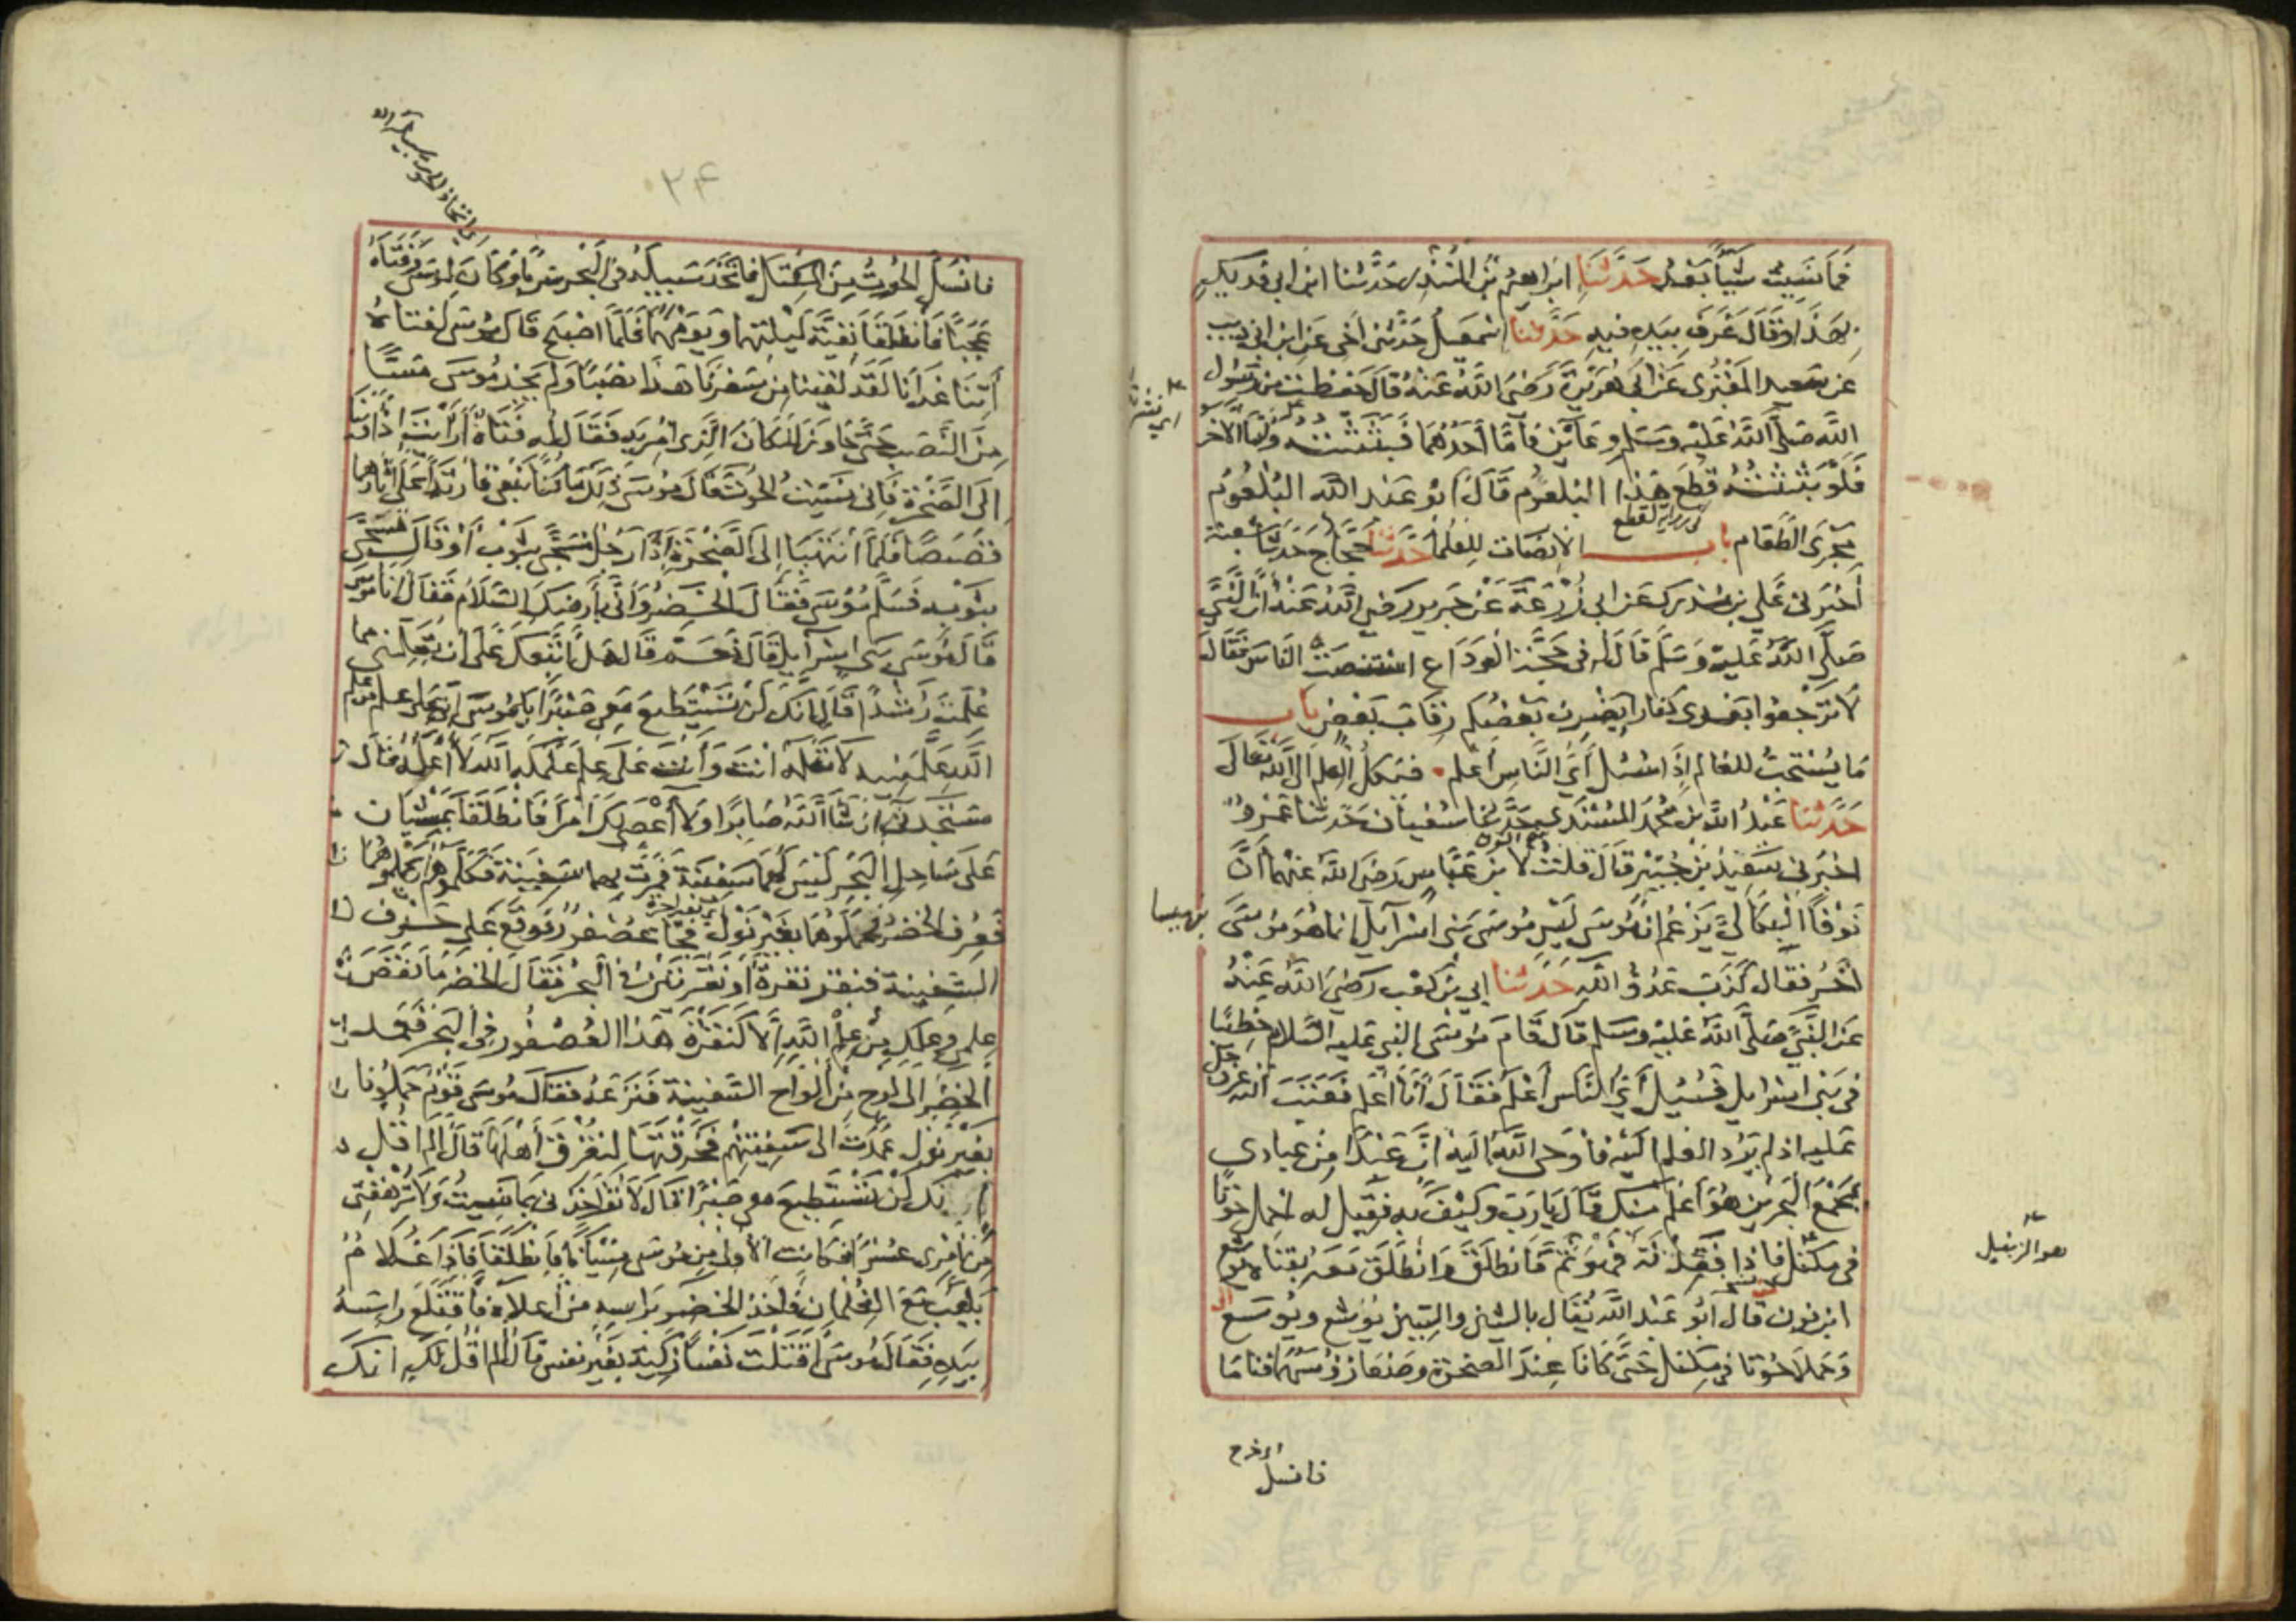 فَمَا نَسِيتُ شَيْئًا بَعْدُ حَدَّثَنَا ابراهيم بن المنذر حَدَّثنا ابن ابي فديك
بهذا وقال غرف بيده فيه حدّثنا اسمعيل حدّثني أخي عن ابن ابي ذيب
عن سعيد المقبرى عن ابي هريرة رضي الله عنه قال حفظت من رسول
الله صلى الله عليه وسلم وعائين فأمّا أحدهما فبثثته وأمّا الآخر
فلو بثثته قطع هذا البلعوم قال ابو عبد الله البلعوم
مجرى الطعام باب الانصات للعلما حدّثنا حجاج حدثنا شعبة
أخبرني علي بن مدرك عن ابي زرعة عن جرير رضي الله عنه أنّ النبي
صلى الله عليه وسلم قال له في حجة الوداع استنصت الناس فقال
لا ترجعوا بعدى كفارا يضرب بعضكم رقاب بعض باب
ما يستحب للعالم إذا سئل أي الناس أعلم فيكل العلم الى الله تعالى
حدّثنا عبد الله بن محمد المسندى حدّثنا سفيان حدثنا عمرو
اخبرني سعيد بن جبير قال قلت لابن عباس رضي الله عنهما أنّ
نوفا البكالي يزعم انّ موسى ليس موسى بني اسرآيل انما هو موسى
اخر فقال كذب عدوّ الله حدثنا ابي بن كعب رضي الله عنه
عن النبي صلى الله عليه وسلم قال قام موسى النبي عليه السلام خطيبا
في بني اسرايل فسئل أي الناس أعلم فقال أنا أعلم فعتب الله عز وجل
عليه اذ لم يردّ العلم اليه فأوحى الله اليه انّ عبدا من عبادي
بمجمع البحرين هو أعلم منك قال يا رب وكيف به فقيل له احمل حوتا
في مكتل فاذا فقدته فهو ثم فانطلق وانطلق معه بفتاه يوشع
ابن نون قال ابو عبد الله يقال بالشين والسين يوشع ويوسع
وحملا حوتا في مكتل حتى كانا عند الصخرة وضعا رؤسهما فناما
هو الزنبيل
فانسل
٢٤
فانسل الحوت من المكتل فاتخذ سبيله في البحر سربا وكان لموسى وفتاه
عجبا فانطلقا بقية ليلتهما ويومهما فلمّا اصبح قال موسى لفتاه
آتنا غدانا لقد لقينا من سفرنا هذا نصبا ولم يجد موسى مسّا
من النصب حتى جاوز المكان الذي امر به فقال له فتاه أرأيت إذ أوينا
الى الصخرة فاني نسيت الحوت قال موسى ذلك ما كنا نبغي فارتدا على آثارهما
قصصا فلما انتهيا إلى الصخرة إذا رجل مسجى بثوب أو قال تسجى
بثوبه فسلم موسى فقال الخضر وأنّى بأرضك السلام فقال أنا موسى
قال موسى بني اسرآيل قال نعم قال هل أتبعك على أن تعلمني مما
علمت رشدا قال إنك لن تستطيع معي صبرا يا موسى إني على علم من علم
الله علمنيه لا تعلمه انت وأنت على علم علمكه الله لا أعلمه قال
ستجدني إن شا الله صابرا ولا أعصي لك امرا فانطلقا يمشيان
على ساحل البحر ليس لهما سفينة فمرت بهما سفينة فكلموهم أن يحملوهما
فعرف الخضر فحملوهما بغير نول فجا عصفور فوقع على حرف
السفينة فنقر نقرة أو نقرتين في البحر فقال الخضر ما نقص
علمي وعلمك من علم الله إلا كنقرة هذا العصفور في البحر فعمد
الخضر الى لوح من ألواح السفينة فنزعه فقال موسى قوم حملونا
بغير نول عمدت الى سفينتهم فخرقتها لتغرق أهلها قال ألم اقل
إنك لن تستطيع معي صبرا قال لا تؤاخذني بما نسيت ولا ترهقني
من أمرى عسرا فكانت الأولى من موسى نسيانا فانطلقا فاذا غلام
يلعب مع الغلمان فأخذ الخضر براسه من أعلاه فاقتلع راسه
بيده فقال موسى أقتلت نفسا زكية بغير نفس قال ألم اقل لك انك